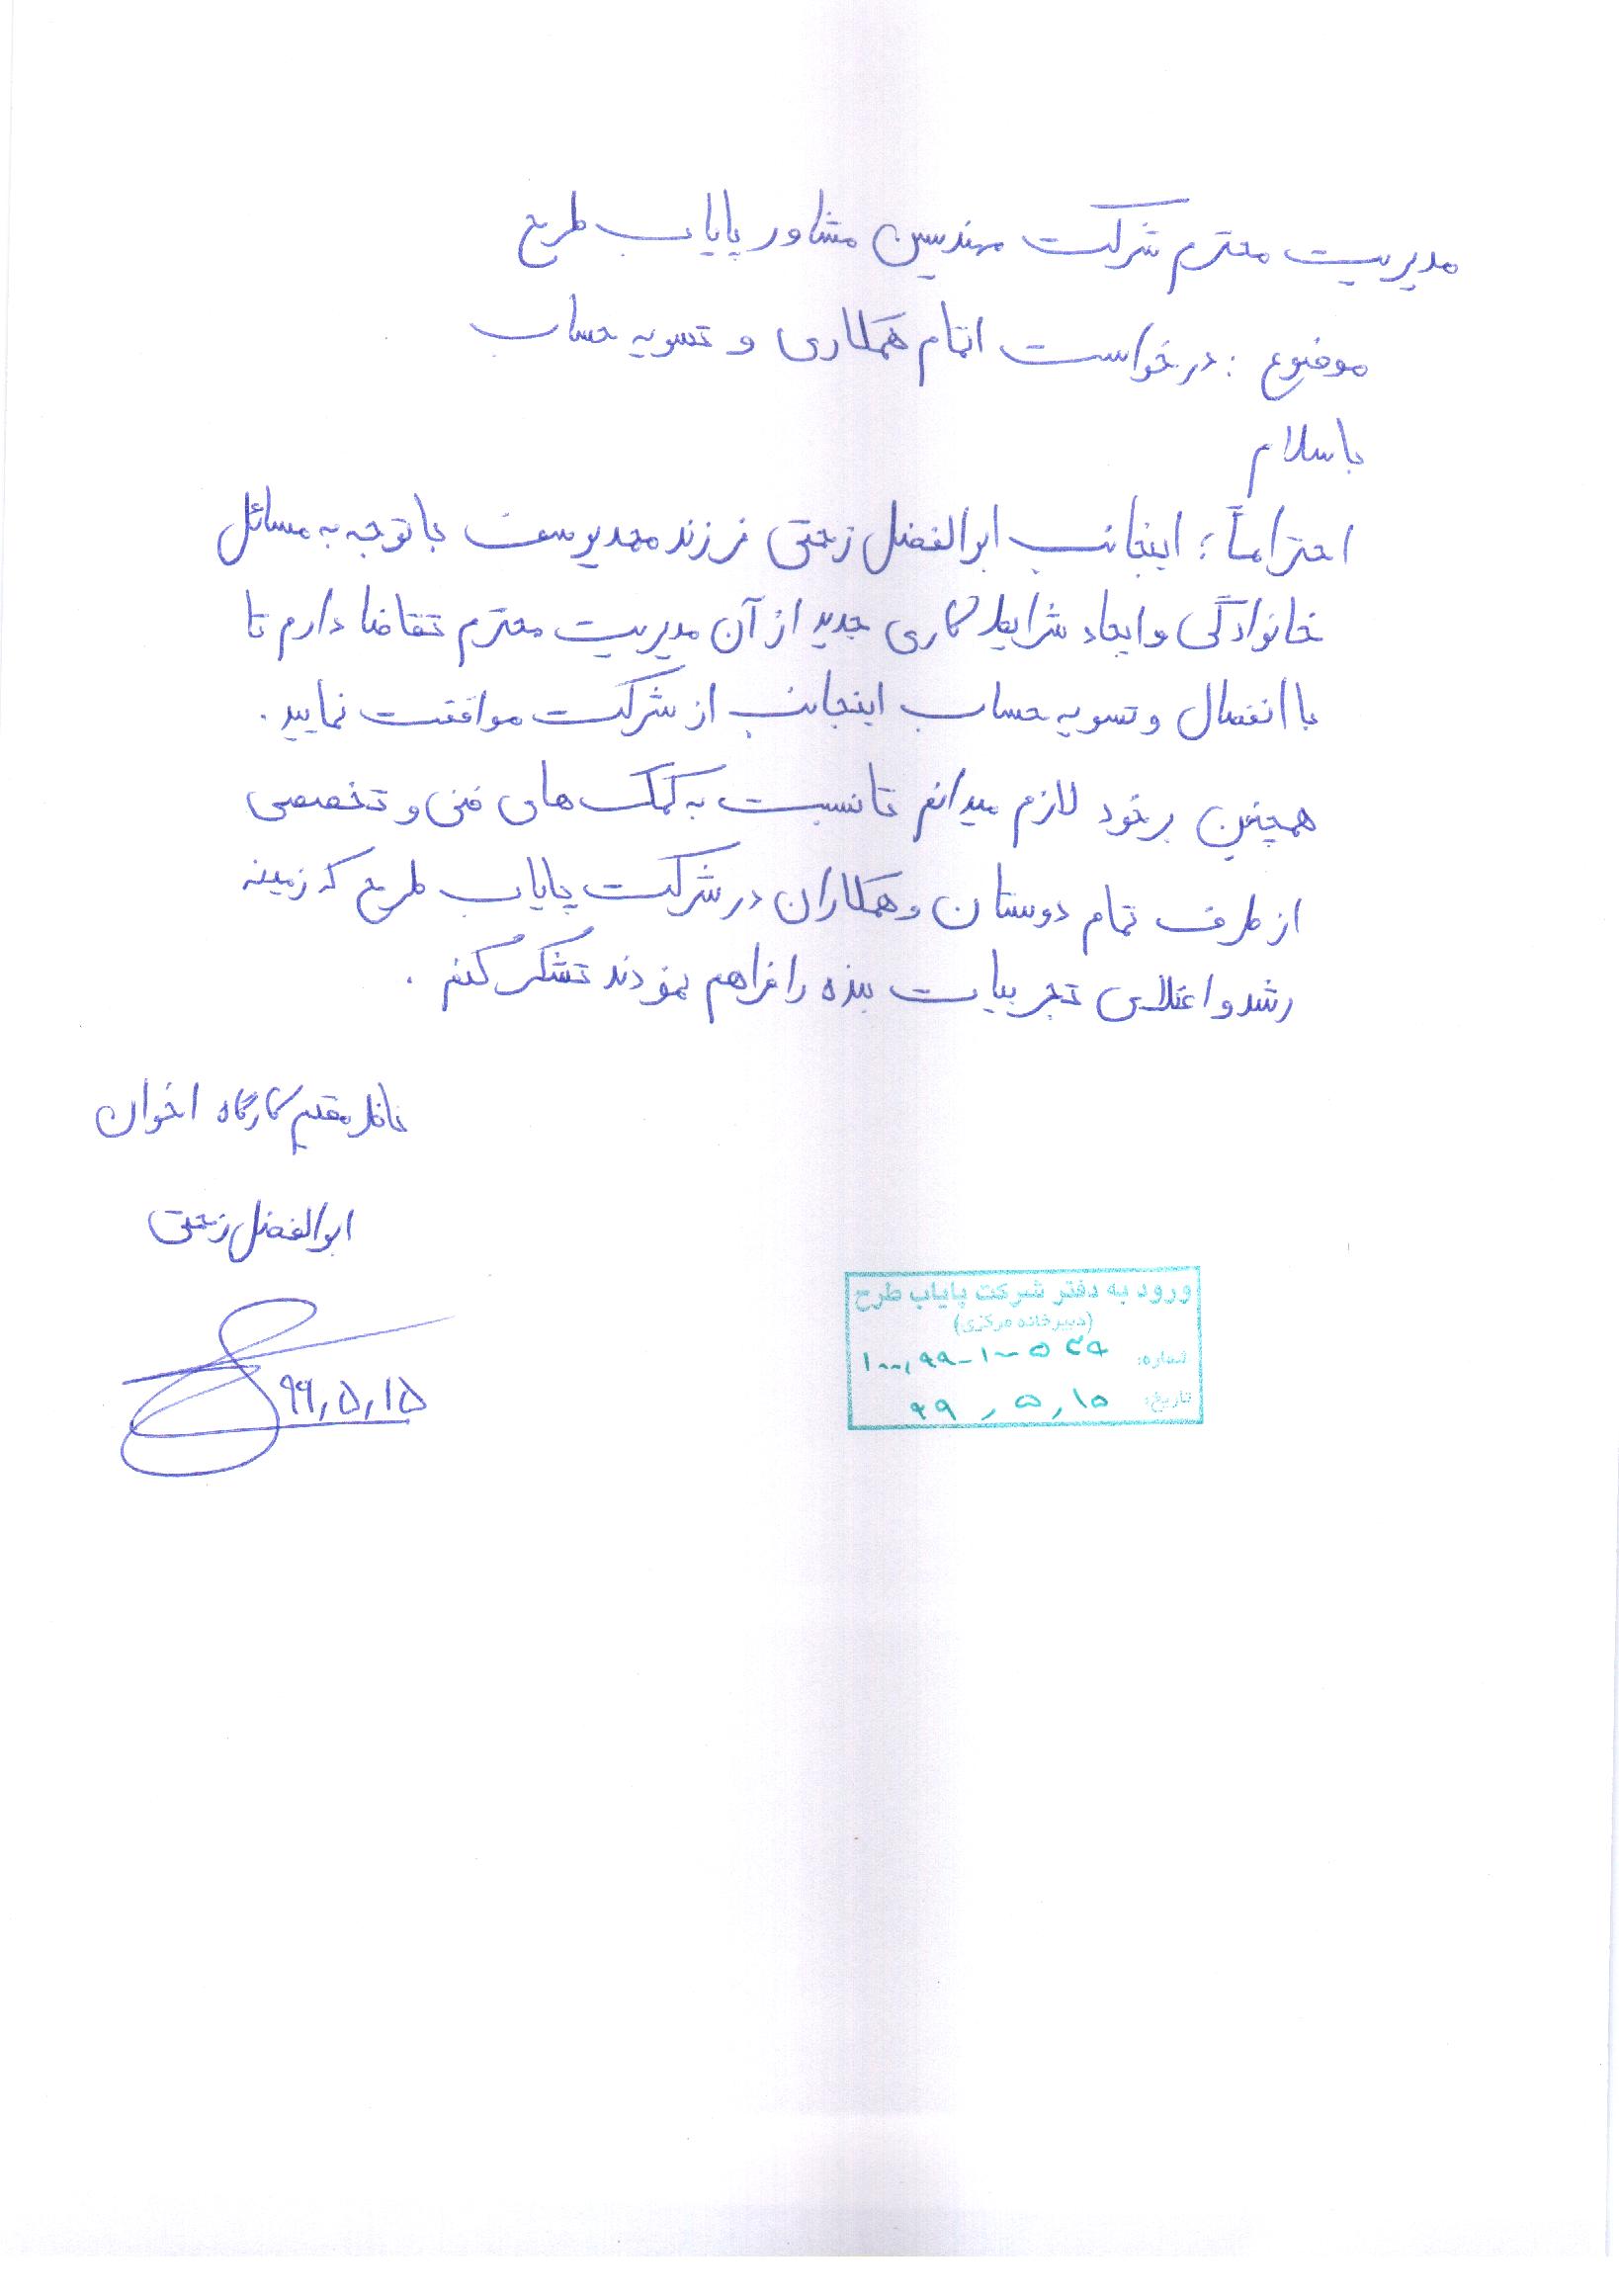 مدیریت محترم شرکت مهندسین مشاور پایاب طرح
موضوع : درخواست اتمام همکاری و تسویه حساب
باسلام
احتراماً ؛ اینجانب ابوالفضل زحمتی فرزند محمدیوسف با توجه به مسائل
خانوادگی و ایجاد شرایط کاری جدید از آن مدیریت محترم تقاضا دارم تا
با انفصال و تسویه حساب اینجانب از شرکت موافقت نمایید .
همچنین برخود لازم میدانم تا نسبت به کمک های فنی و تخصصی
از طرف تمام دوستان و همکاران در شرکت پایاب طرح که زمینه
رشد و اعتلای تجربیات بنده را فراهم نمودند تشکر کنم .
ناظر مقیم کارگاه اخوان
ابوالفضل زحمتی
۹۹,۵,۱۵
ورود به دفتر شرکت پایاب طرح
(دبیرخانه مرکزی)
شماره:
تاریخ: ۹۹,۵,۱۵